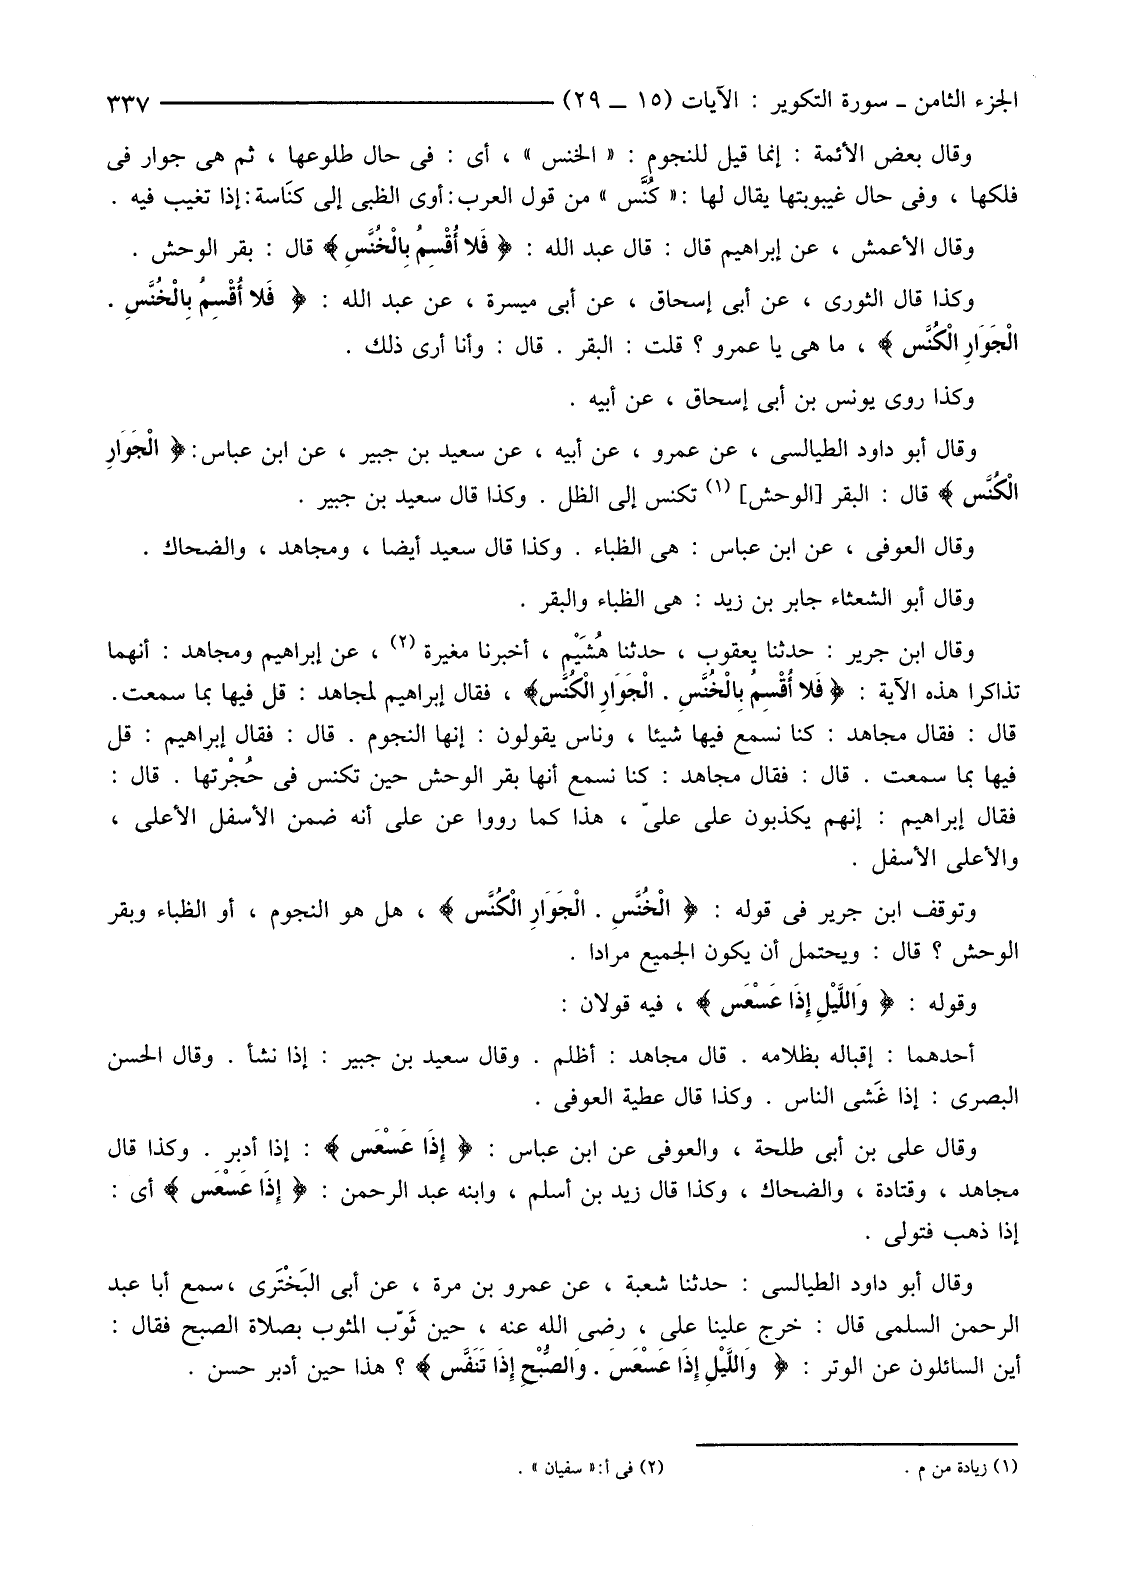 الجزء الثامن ـ سورة التكوير : الآيات (١٥ ــ ٢٩) ٣٣٧
وقال بعض الأئمة : إنما قيل للنجوم : « الخنس » ، أى : فى حال طلوعها ، ثم هى جوار فى
فلكها ، وفى حال غيبوبتها يقال لها :« كُنَّس » من قول العرب:أوى الظبى إلى كنَاسة:إذا تغيب فيه .
وقال الأعمش ، عن إبراهيم قال : قال عبد الله : ﴿ فَلا أُقْسِمُ بِالْخُنَّسِ ﴾ قال : بقر الوحش .
وكذا قال الثورى ، عن أبى إسحاق ، عن أبى ميسرة ، عن عبد الله : ﴿ فَلا أُقْسِمُ بِالْخُنَّسِ .
الْجَوَارِ الْكُنَّس ﴾ ، ما هى يا عمرو ؟ قلت : البقر . قال : وأنا أرى ذلك .
وكذا روى يونس بن أبى إسحاق ، عن أبيه .
وقال أبو داود الطيالسى ، عن عمرو ، عن أبيه ، عن سعيد بن جبير ، عن ابن عباس: ﴿ الْجَوَارِ
الْكُنَّس ﴾ قال : البقر [الوحش] (١) تكنس إلى الظل . وكذا قال سعيد بن جبير .
وقال العوفى ، عن ابن عباس : هى الظباء . وكذا قال سعيد أيضا ، ومجاهد ، والضحاك .
وقال أبو الشعثاء جابر بن زيد : هى الظباء والبقر .
وقال ابن جرير : حدثنا يعقوب ، حدثنا هُشَيْم ، أخبرنا مغيرة (٢) ، عن إبراهيم ومجاهد : أنهما
تذاكرا هذه الآية : ﴿ فَلا أُقْسِمُ بِالْخُنَّسِ . الْجَوَارِ الْكُنَّس﴾ ، فقال إبراهيم لمجاهد : قل فيها بما سمعت.
قال : فقال مجاهد : كنا نسمع فيها شيئا ، وناس يقولون : إنها النجوم . قال : فقال إبراهيم : قل
فيها بما سمعت . قال : فقال مجاهد : كنا نسمع أنها بقر الوحش حين تكنس فى حُجْرتها . قال :
فقال إبراهيم : إنهم يكذبون على علىّ ، هذا كما رووا عن على أنه ضمن الأسفل الأعلى ،
والأعلى الأسفل .
وتوقف ابن جرير فى قوله : ﴿ الْخُنَّسِ . الْجَوَارِ الْكُنَّس ﴾ ، هل هو النجوم ، أو الظباء وبقر
الوحش ؟ قال : ويحتمل أن يكون الجميع مرادا .
وقوله : ﴿ وَاللَّيْلِ إِذَا عَسْعَس ﴾ ، فيه قولان :
أحدهما : إقباله بظلامه . قال مجاهد : أظلم . وقال سعيد بن جبير : إذا نشأ . وقال الحسن
البصرى : إذا غَشى الناس . وكذا قال عطية العوفى .
وقال على بن أبى طلحة ، والعوفى عن ابن عباس : ﴿ إِذَا عَسْعَس ﴾ : إذا أدبر . وكذا قال
مجاهد ، وقتادة ، والضحاك ، وكذا قال زيد بن أسلم ، وابنه عبد الرحمن : ﴿ إِذَا عَسْعَس ﴾ أى :
إذا ذهب فتولى .
وقال أبو داود الطيالسى : حدثنا شعبة ، عن عمرو بن مرة ، عن أبى البَخْتَرى ،سمع أبا عبد
الرحمن السلمى قال : خرج علينا على ، رضى الله عنه ، حين ثَوّب المثوب بصلاة الصبح فقال :
أين السائلون عن الوتر : ﴿ وَاللَّيْلِ إِذَا عَسْعَسَ . وَالصُّبْحِ إِذَا تَنَفَّس ﴾ ؟ هذا حين أدبر حسن .
(١) زيادة من م .
(٢) فى أ:« سفيان » .